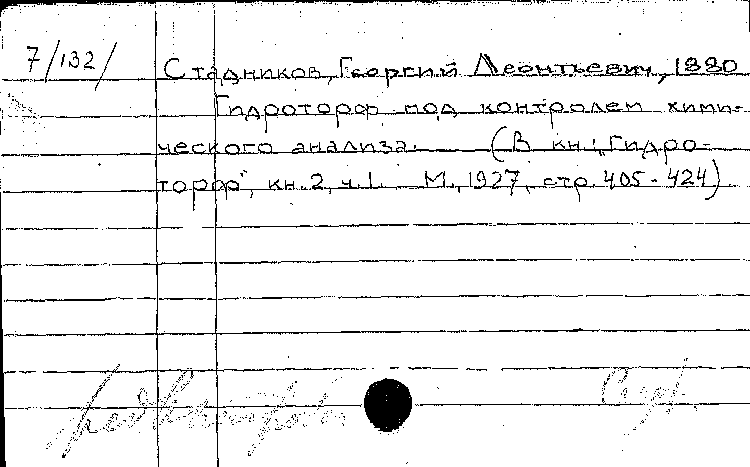 7/132/
Стадников, Георгий Леонтьевич, 1880
Гидроторф под контролем хими-
ческого анализа. (В кн.: „Гидро-
торф", кн. 2, ч. 1. М., 1927, стр. 405-424)